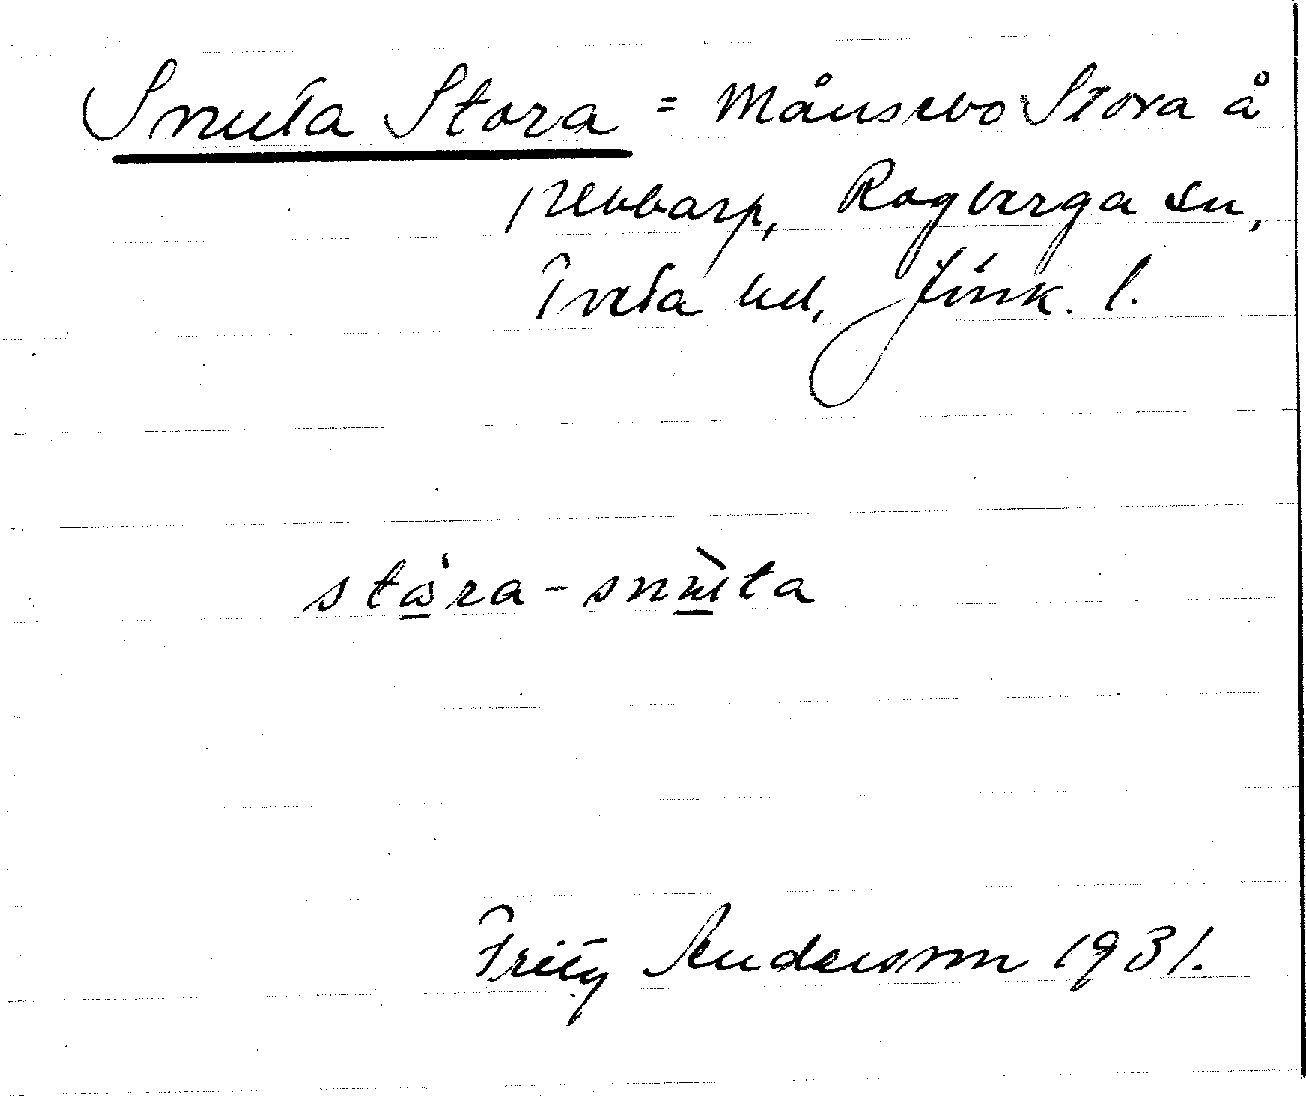 Snuta Stora = Månsebo Stora å
Rebbarp, Rogberga sn,
Tveta hd, Jönk. l.
stòra-snùta
Fritz Andersson 1931.